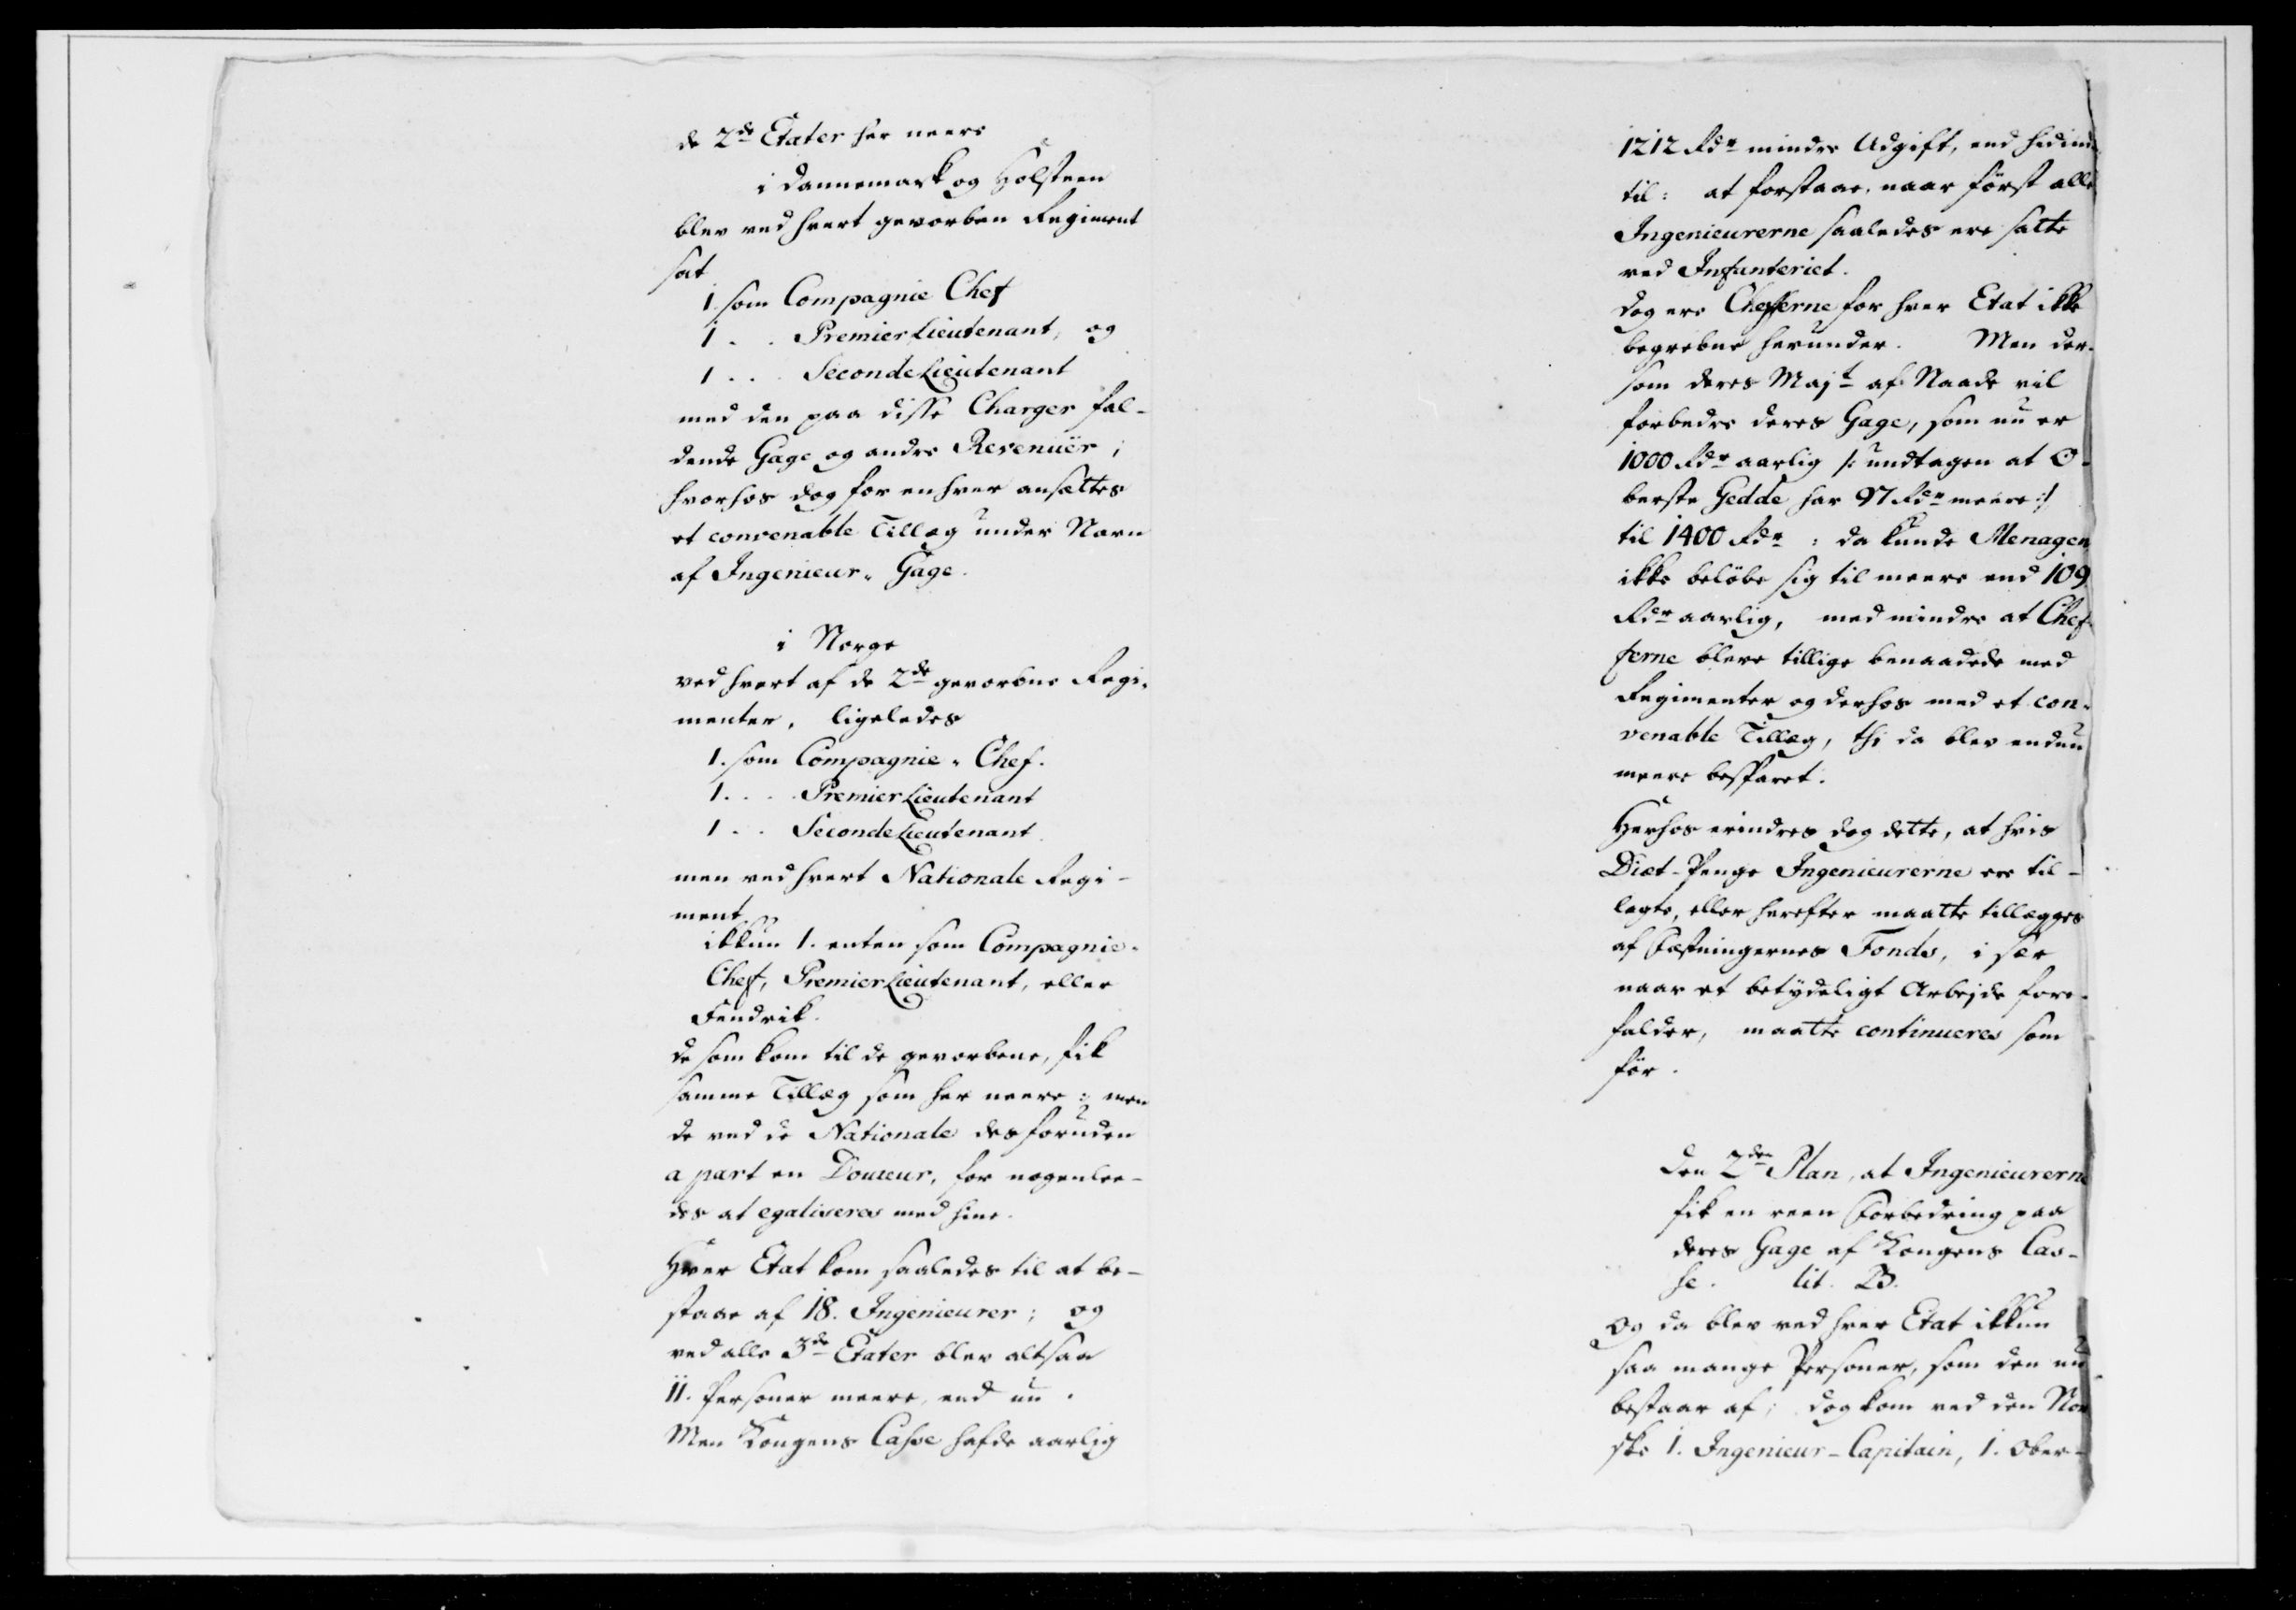 de 2de Etater her neere
i Dannemark og Holsteen
blev ved hvert gevorben Regiment
sat
1. som Compagnie Chef
1 . . PremierLieutenant, og
1 . . . SecondeLieutenant
med den paa disse Charger fal-
dende Gage og andre Revenüer,
hvorhos dog for enhver ansættes
et convenable Tillæg under Navn
af Ingenieur-Gage.
i Norge
ved hvert af de 2de gevorbne Regi-
menter, ligeledes
1. som Compagnie-Chef.
1. . . . PremierLieutenant
1 . . SecondeLieutenant
men ved hvert Nationale Regi-
ment
ikkun 1. enten som Compagnie-
Chef, PremierLieutenant, eller
Fendrik.
de som kom til de gevorbene, fik
samme Tillæg som her neere: men
de ved de Nationale desforuden
a part en Douceur, for nogenlee-
des at egaliseres med hine.
Hver Etat kom saaledes til at be-
staae af 18. Ingenieurer; og
ved alle 3de Etater blev altsaa
11. Personer meere, end nu.
Men Kongens Casse hafde aarlig
1212 Rdr mindre Udgift, end hidind
til: at forstaae, naar först alle
Ingenieurerne saaledes ere satte
ved Infanteriet.
dog ere Chefferne for hver Etat ikke
begrebne herunder. Men der-
som deres Majt af Naade vil
forbedre deres Gage, som nu er
1000 Rdr aarlig /: undtagen at O-
berste Gedde har 97 Rdr meere :/
til 1400 Rdr: da kunde Menagen
ikke belöbe sig til meere end 109
Rdr aarlig, med mindre at Chef-
ferne bleve tillige benaadede med
Regimenter og derhos med et con-
venable Tillæg, thi da blev endnu
meere besparet.
Herhos erindres dog dette, at hvis
Diæt-Penge Ingenieurerne ere til-
lagte, eller herefter maatte tillægges
af Fæstningernes Fonds, i sær
naar et betydeligt Arbejde fore-
falder, maatte continueres som
för.
Den 2den Plan, at Ingenieurerne
fik en reen Forbedring paa
deres Gage af Kongens Cas-
se. lit. B.
Og da blev ved hver Etat ikkun
saa mange Personer, som den nu
bestaar af; dog kom ved den Nor
ske 1. Ingenieur-Capitain, 1. Ober-